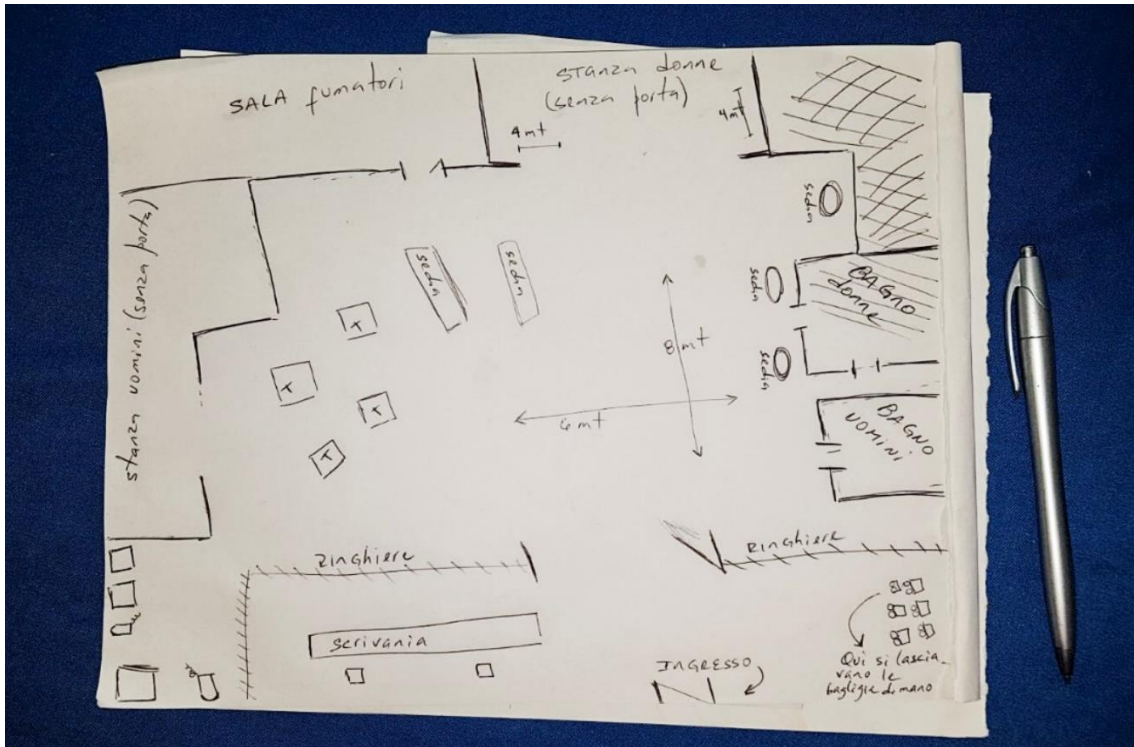 SALA fumatori
STANZA donne
(senza porta)
4 mt
4 mt
stanza uomini (senza porta)
sedia
sedia
sedia
sedia
sedia
BAGNO
donne
T
T
T
T
8 mt
6 mt
BAGNO
UOMINI
Ringhiere
Ringhiere
scrivania
INGRESSO
Qui si lascia-
vano le
bagligie di mano